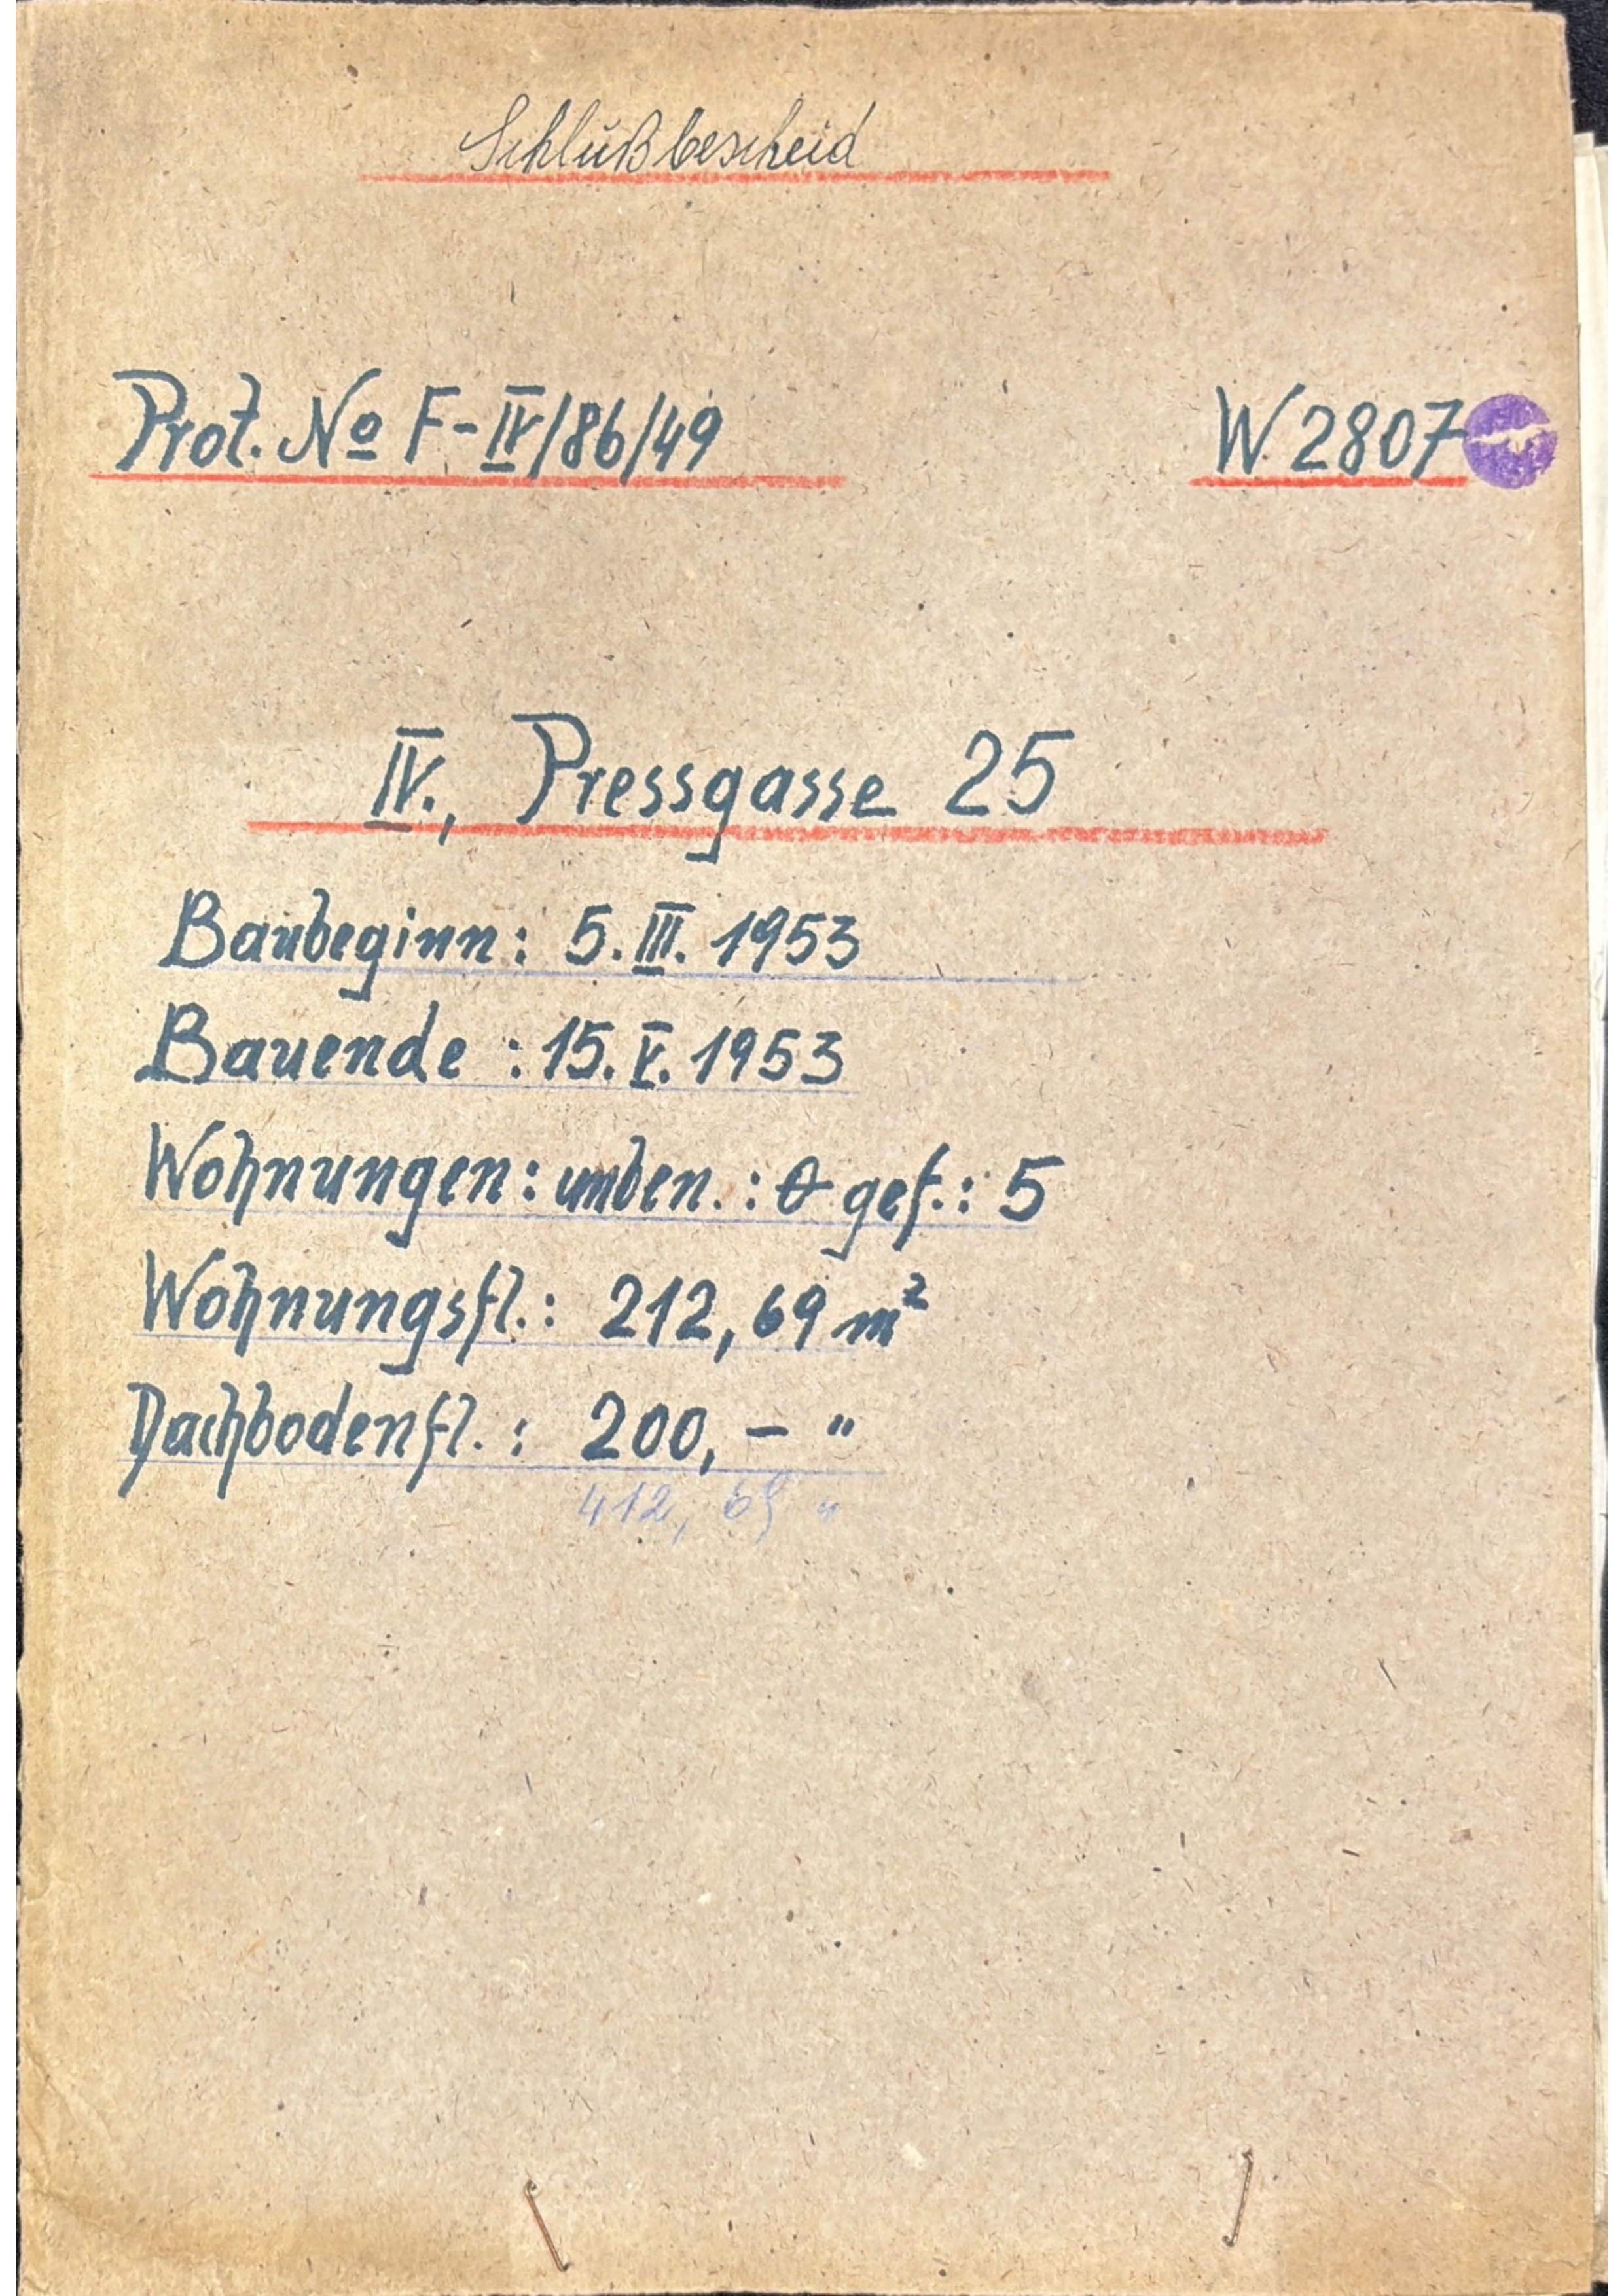 Schlußbescheid
Prot. No F-IV/86/49 W. 2807
IV., Pressgasse 25
Baubeginn: 5. III. 1953
Bauende : 15. V. 1953
Wohnungen: unben. : 0 gef.: 5
Wohnungsfl.: 212,69 m²
Dachbodenfl. : 200,— "
412, 69 "